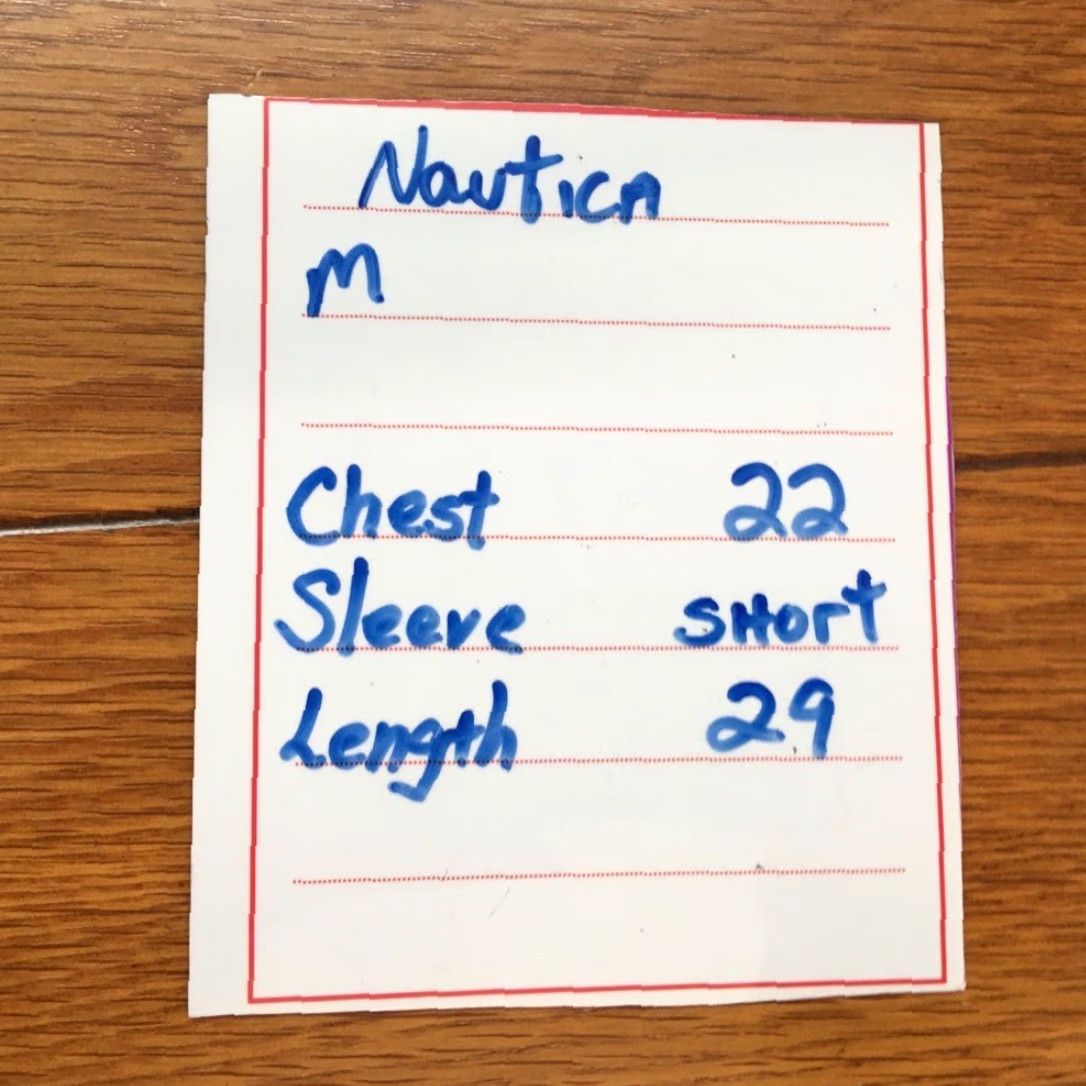 Nautica
M
Chest 22
Sleeve SHort
Length 29